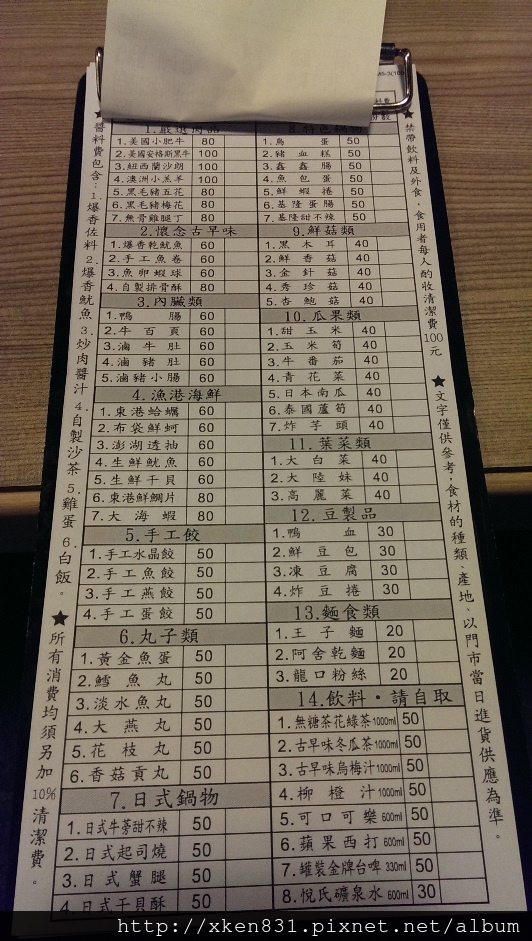 1.嚴選肉品
1.美國小肥牛 80
2.美國安格斯黑牛 100
3.紐西蘭沙朗 100
4.澳洲小羔羊 100
5.黑毛豬五花 80
6.黑毛豬梅花 80
7.無骨雞腿丁 80
2.懷念古早味
1.爆香乾魷魚 60
2.手工魚卷 60
3.魚卵蝦球 60
4.自製排骨酥 60
3.內臟類
1.鴨腸 60
2.牛百頁 60
3.滷牛肚 60
4.滷豬肚 60
5.滷豬小腸 60
4.漁港海鮮
1.東港蛤蠣 60
2.布袋鮮蚵 60
3.澎湖透抽 60
4.生鮮魷魚 60
5.生鮮干貝 60
6.東港鮮鯛片 80
7.大海蝦 80
5.手工餃
1.手工水晶餃 50
2.手工魚餃 50
3.手工燕餃 50
4.手工蛋餃 50
6.丸子類
1.黃金魚蛋 50
2.鱈魚丸 50
3.淡水魚丸 50
4.大燕丸 50
5.花枝丸 50
6.香菇貢丸 50
7.日式鍋物
1.日式牛蒡甜不辣 50
2.日式起司燒 50
3.日式蟹腿 50
4.日式干貝酥 50
8.特色鍋物
1.鳥蛋 50
2.豬血糕 50
3.鑫鑫腸 50
4.魚包蛋 50
5.鮮蝦捲 50
6.基隆蛋腸 50
7.基隆甜不辣 50
9.鮮菇類
1.黑木耳 40
2.鮮香菇 40
3.金針菇 40
4.秀珍菇 40
5.杏鮑菇 40
10.瓜果類
1.甜玉米 40
2.玉米筍 40
3.牛番茄 40
4.青花菜 40
5.日本南瓜 40
6.泰國蘆筍 40
7.炸芋頭 40
11.葉菜類
1.大白菜 40
2.大陸妹 40
3.高麗菜 40
12.豆製品
1.鴨血 30
2.鮮豆包 30
3.凍豆腐 30
4.炸豆捲 30
13.麵食類
1.王子麵 20
2.阿舍乾麵 20
3.龍口粉絲 20
14.飲料・請自取
1.無糖茶花綠茶1000ml 50
2.古早味冬瓜茶1000ml 50
3.古早味烏梅汁1000ml 50
4.柳橙汁1000ml 50
5.可口可樂600ml 50
6.蘋果西打600ml 50
7.罐裝金牌台啤330ml 50
8.悅氏礦泉水600ml 30
★禁帶飲料及外食,食用者每人酌收清潔費100元 ★文字僅供參考,食材的種類、產地、以門市當日進貨供應為準。
★醬料費包含:1.爆香佐料 2.爆香魷魚 3.炒肉醬汁 4.自製沙茶 5.雞蛋 6.白飯。 ★所有消費均須另加10%清潔費。
http://xken831.pixnet.net/album